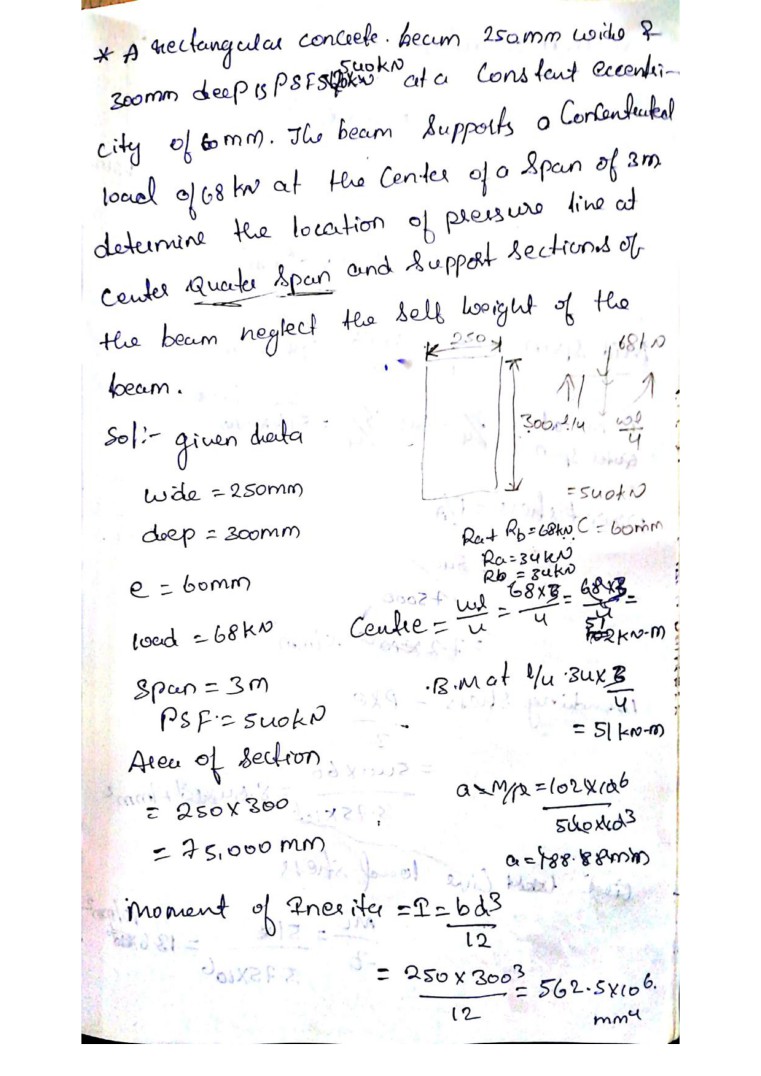 * A rectangular concrete. beam 250mm wide &
300mm deep is PSF 540kN at a constent eccentri-
city of 60mm. The beam supports a Concentrated
load of 68 kN at the center of a span of 3m
determine the location of pressure line at
center Quater span and support sections of
the beam neglect the self weight of the
beam.
250
68kN
300
wl/4
= 540kN
Sol:- given data
wide = 250mm
deep = 300mm
e = 60mm
load = 68kN
Span = 3m
PSF = 540kN
Ra + Rb = 68kN e = 60mm
Ra = 34kN
Rb = 34kN
Centre = wl/4 = 68x3/4 = 68x3/4 =
51 kN-m
.B.M at l/4 . 34x3/4
= 51 kN-m
Area of section
= 250 x 300
= 75,000 mm
a = M/P = 102x10⁶/540x10³
a = 188.88mm
Moment of Inerita = I = bd³/12
= 250 x 300³/12 = 562.5x10⁶.
mm⁴